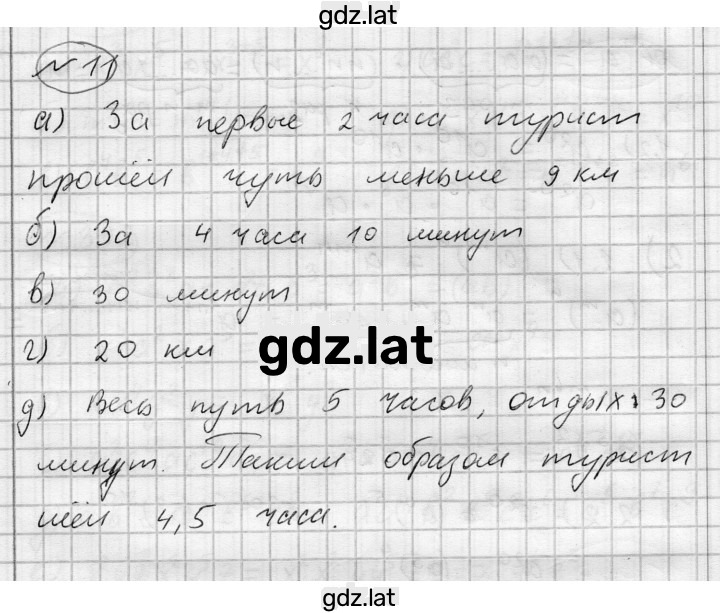 gdz.lat
№ 11
а) За первые 2 часа турист
прошёл путь меньше 9 км
б) За 4 часа 10 минут
в) 30 минут
г) 20 км
gdz.lat
д) Весь путь 5 часов, отдых 30
минут. Таким образом турист
шёл 4,5 часа.
gdz.lat